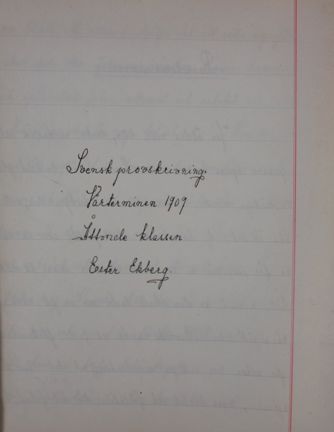 Svensk provskrivning.
Vårterminen 1909
Åttonde klassen
Ester Ekberg.